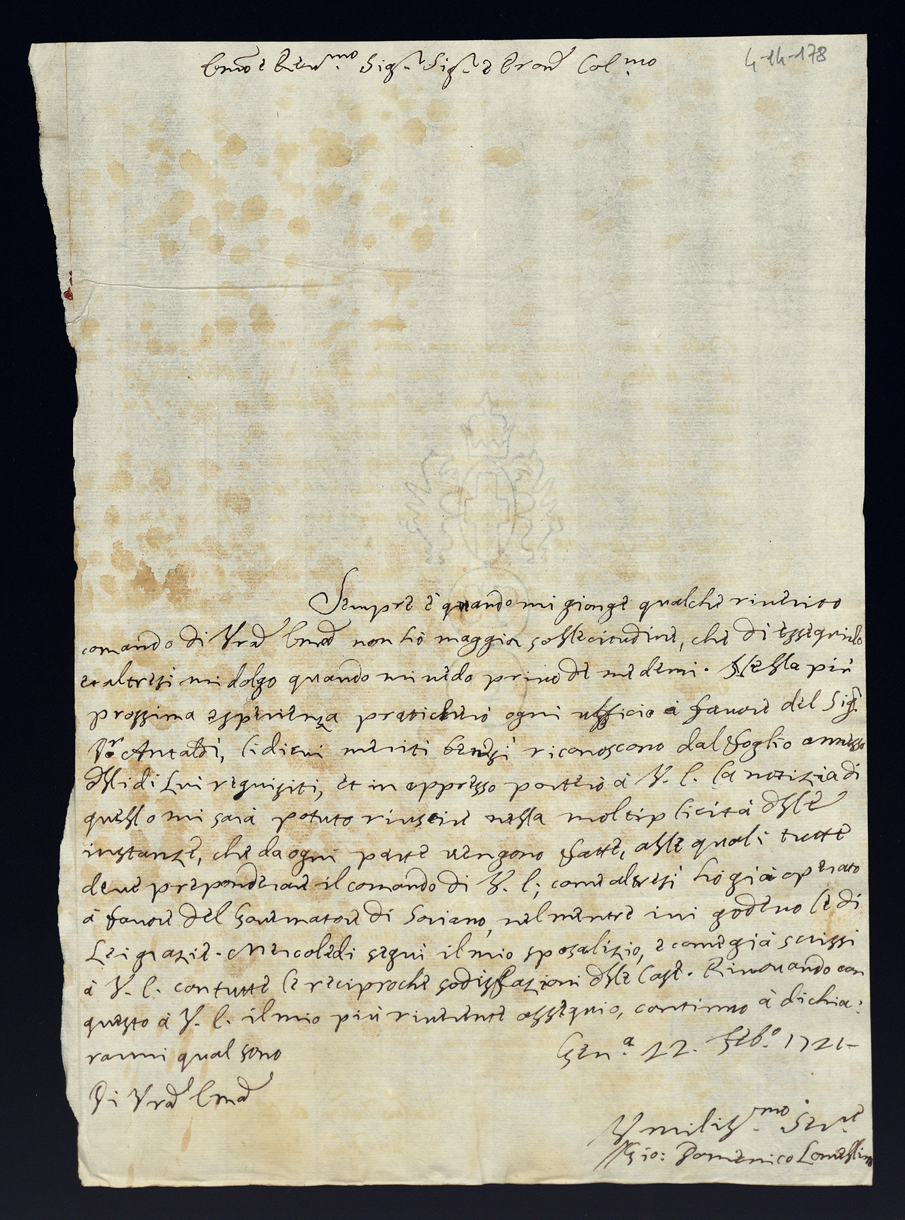 4-14-178
Em̃o e Reu.mo Sig.r Sig.r e Pron̄ Col.mo
Sempre è quando mi gionge qualche riuerito
comando di Vrā Emā non hò maggior sollecitudine, che di esseguirlo
et altresi mi dolgo quando mi uedo priuo de medemi. Nella più
prossima esperienza praticherò ogni ufficio à fauore del Sig.r
Antaldi, li di cui meriti benssi riconoscono dal foglio annesso
delli di Lui requisiti, et in appresso porterò à V. E. la notizia di
quello mi sarà potuto riuscire nella moltiplicità delle
instanze, che da ogni parte uengono fatte, alle quali tutte
deue preponderare il comando di V. E.; come altresi hò già operato
à fauore del Gouernatore di Soriano, nel mentre iui godeuo le di
Lei grazie. Mercoledi segui il mio sposalizio, e come già scrissi
à V. E. con tutte le reciproche sodisfazioni delle Case. Rinouando con
questo à V. E. il mio più riuerente ossequio, continuo à dichia:
rarmi qual sono
Gen.a 22. Feb.o 1721
Di Vrā Emā
Vmiliss.mo Ser.e
Gio: Domenico Lomellino